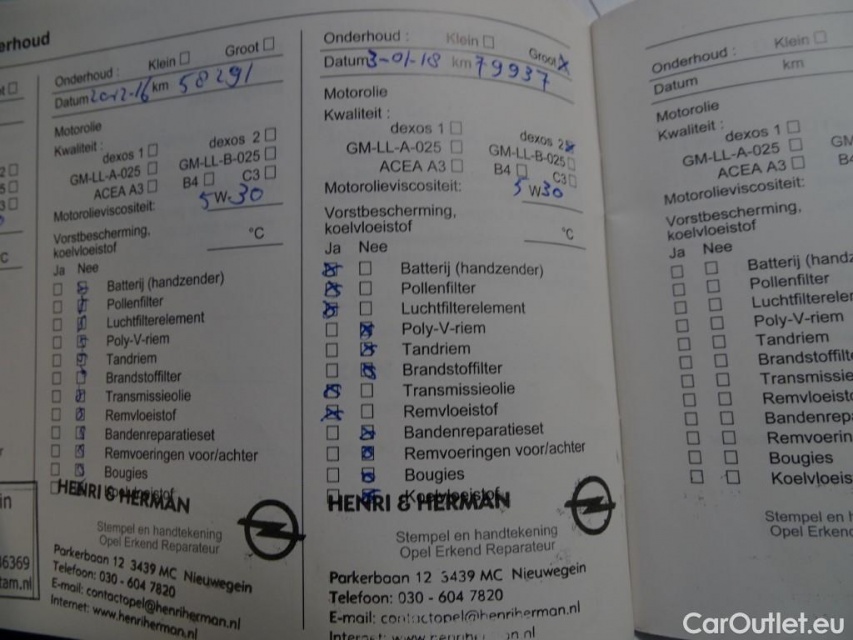 erhoud
Onderhoud : Klein Groot
Datum 20-12-16 km 58291
Motorolie
Kwaliteit :
dexos 1 dexos 2
GM-LL-A-025 GM-LL-B-025
ACEA A3 B4 C3
Motorolieviscositeit: 5 W-30
Vorstbescherming,
koelvloeistof °C
Ja Nee
Batterij (handzender)
Pollenfilter
Luchtfilterelement
Poly-V-riem
Tandriem
Brandstoffilter
Transmissieolie
Remvloeistof
Bandenreparatieset
Remvoeringen voor/achter
Bougies
Koelvloeistof
HENRI & HERMAN
Stempel en handtekening
Opel Erkend Reparateur
Parkerbaan 12 3439 MC Nieuwegein
Telefoon: 030 - 604 7820
E-mail: contactopel@henriherman.nl
Internet: www.henriherman.nl
in
6369
tam.nl
Onderhoud : Klein Groot
Datum 3-01-18 km 79937
Motorolie
Kwaliteit :
dexos 1 dexos 2
GM-LL-A-025 GM-LL-B-025
ACEA A3 B4 C3
Motorolieviscositeit: 5 W30
Vorstbescherming,
koelvloeistof °C
Ja Nee
Batterij (handzender)
Pollenfilter
Luchtfilterelement
Poly-V-riem
Tandriem
Brandstoffilter
Transmissieolie
Remvloeistof
Bandenreparatieset
Remvoeringen voor/achter
Bougies
Koelvloeistof
HENRI & HERMAN
Stempel en handtekening
Opel Erkend Reparateur
Parkerbaan 12 3439 MC Nieuwegein
Telefoon: 030 - 604 7820
E-mail: contactopel@henriherman.nl
Onderhoud : Klein
Datum km
Motorolie
Kwaliteit :
dexos 1
GM-LL-A-025 GM
ACEA A3 B4
Motorolieviscositeit:
Vorstbescherming,
koelvloeistof
Ja Nee
Batterij (handz
Pollenfilter
Luchtfilterele
Poly-V-riem
Tandriem
Brandstoffilt
Transmissie
Remvloeist
Bandenrepa
Remvoerin
Bougies
Koelvloeis
Stempel en h
Opel Erkend
CarOutlet.eu